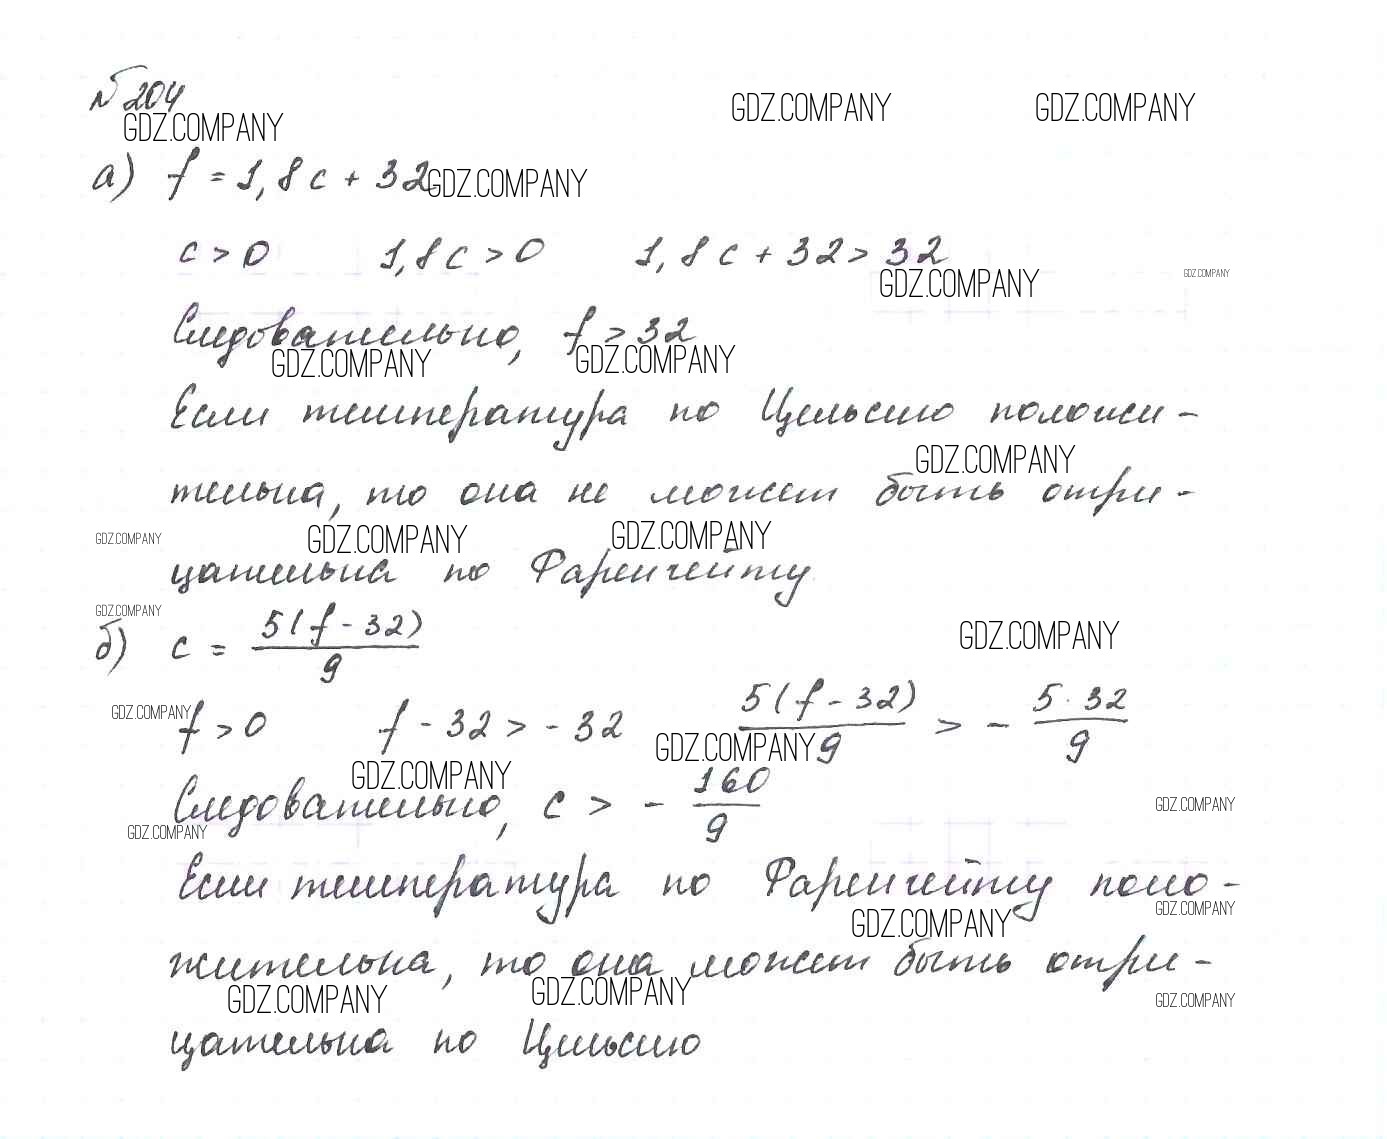 № 204
GDZ.COMPANY GDZ.COMPANY GDZ.COMPANY
а) f = 1,8c + 32 GDZ.COMPANY
c > 0 1,8c > 0 1,8c + 32 > 32
GDZ.COMPANY GDZ.COMPANY
Следовательно, f > 32
GDZ.COMPANY GDZ.COMPANY
Если температура по Цельсию положи-
GDZ.COMPANY
тельна, то она не может быть отри-
GDZ.COMPANY GDZ.COMPANY GDZ.COMPANY
цательна по Фаренгейту
GDZ.COMPANY
б) c = 5(f - 32) / 9 GDZ.COMPANY
GDZ.COMPANY
f > 0 f - 32 > - 32 5(f - 32) / 9 > - 5 · 32 / 9
GDZ.COMPANY
GDZ.COMPANY
Следовательно, c > - 160 / 9 GDZ.COMPANY
GDZ.COMPANY
Если температура по Фаренгейту поло-
GDZ.COMPANY GDZ.COMPANY
жительна, то она может быть отри-
GDZ.COMPANY GDZ.COMPANY GDZ.COMPANY
цательна по Цельсию